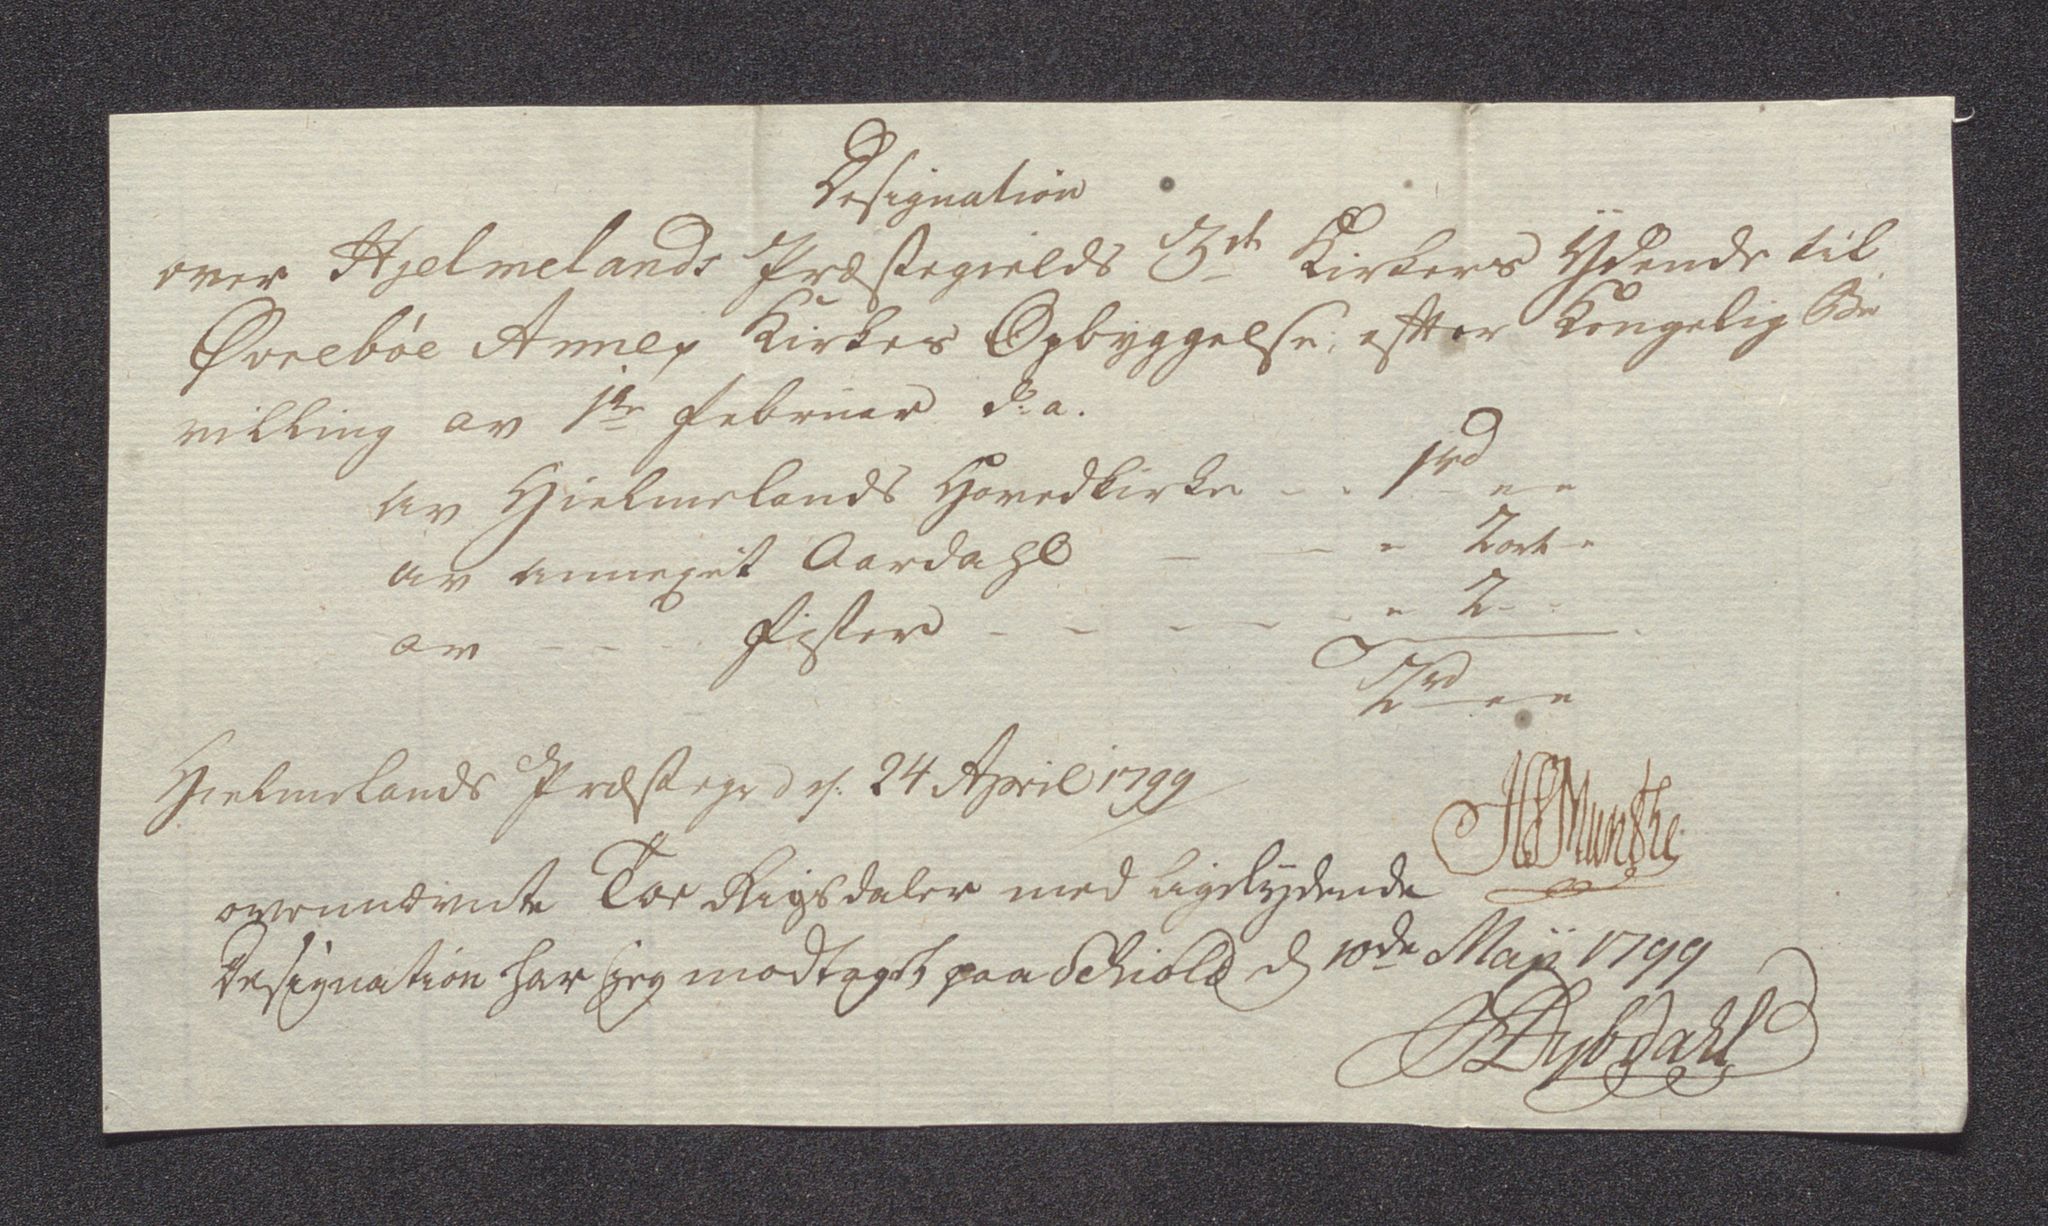 Designation
over Hjelmelands Præstegields 3de Kirkers Ydende til
Øvrebøe Annex Kirkes Opbyggelse, efter Kongelig Be
villing av 1te Februar d: a.
av Hjelmelands Hovedkirke - - 1rd " "
av annexet Aardahl - - " 2ort "
av - - - Fister - - - - - " 2 - -
2rd " "
Hielmelands Præstegrd d. 24 April 1799
Munthe
ovennævnte Toe Rigsdaler med ligelydende
Designation har jeg modtaget paa Schiold d 10de Maji 1799
Dybdahl